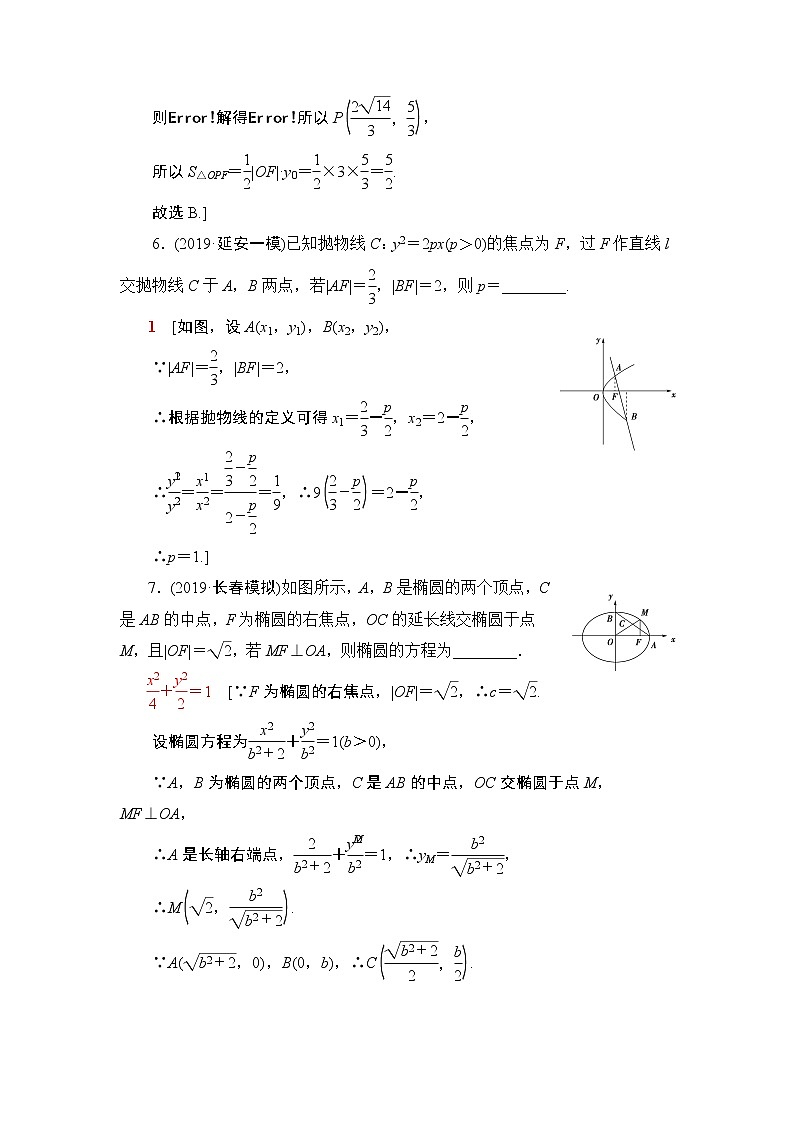 则Error!解得Error!所以 P(2√14/3，5/3)，
所以 S△OPF＝1/2|OF|·y₀＝1/2×3×5/3＝5/2.
故选 B.]
6．(2019·延安一模)已知抛物线 C：y²＝2px(p＞0)的焦点为 F，过 F 作直线 l
交抛物线 C 于 A，B 两点，若|AF|＝2/3，|BF|＝2，则 p＝________.
1　[如图，设 A(x₁，y₁)，B(x₂，y₂)，
∵|AF|＝2/3，|BF|＝2，
∴根据抛物线的定义可得 x₁＝2/3－p/2，x₂＝2－p/2，
y
A
O
F
x
B
∴y₁²/y₂²＝x1/x2＝(2/3－p/2)/(2－p/2)＝1/9，∴9(2/3－p/2)＝2－p/2，
∴p＝1.]
7．(2019·长春模拟)如图所示，A，B 是椭圆的两个顶点，C
是 AB 的中点，F 为椭圆的右焦点，OC 的延长线交椭圆于点
M，且|OF|＝√2，若 MF⊥OA，则椭圆的方程为________．
y
B
M
C
O
F
A
x
x²/4＋y²/2＝1　[∵F 为椭圆的右焦点，|OF|＝√2，∴c＝√2.
设椭圆方程为x²/(b²＋2)＋y²/b²＝1(b＞0)，
∵A，B 为椭圆的两个顶点，C 是 AB 的中点，OC 交椭圆于点 M，
MF⊥OA，
∴A 是长轴右端点，2/(b²＋2)＋y²M/b²＝1，∴yM＝b²/√(b²＋2)，
∴M(√2，b²/√(b²＋2)).
∵A(√(b²＋2)，0)，B(0，b)，∴C(√(b²＋2)/2，b/2).